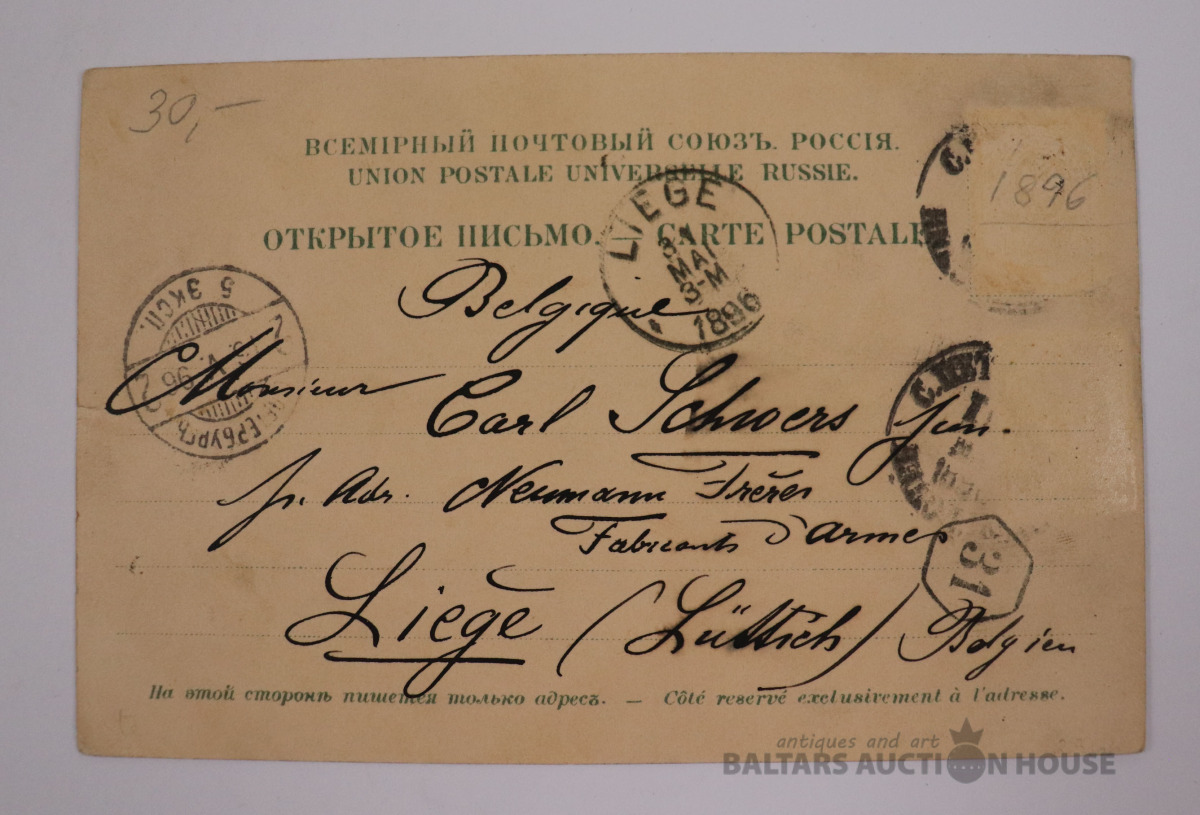 30,—
ВСЕМІРНЫЙ ПОЧТОВЫЙ СОЮЗЪ. РОССІЯ.
UNION POSTALE UNIVERSELLE RUSSIE.
1896
ОТКРЫТОЕ ПИСЬМО. CARTE POSTALE
LIEGE
31
MAI
3-M
1896
5 ЭКСП.
2
V. 96
2
ЕРБУРГЪ
Belgique
Monsieur
Carl Schwers jun.
С.ПЕТ
pr. Adr. Neumann Frères
Fabricants d'armes
31
Liège (Lüttich) Belgien
На этой сторонѣ пишется только адресъ. — Côté reservé exclusivement à l'adresse.
antiques and art
BALTARS AUCTION HOUSE